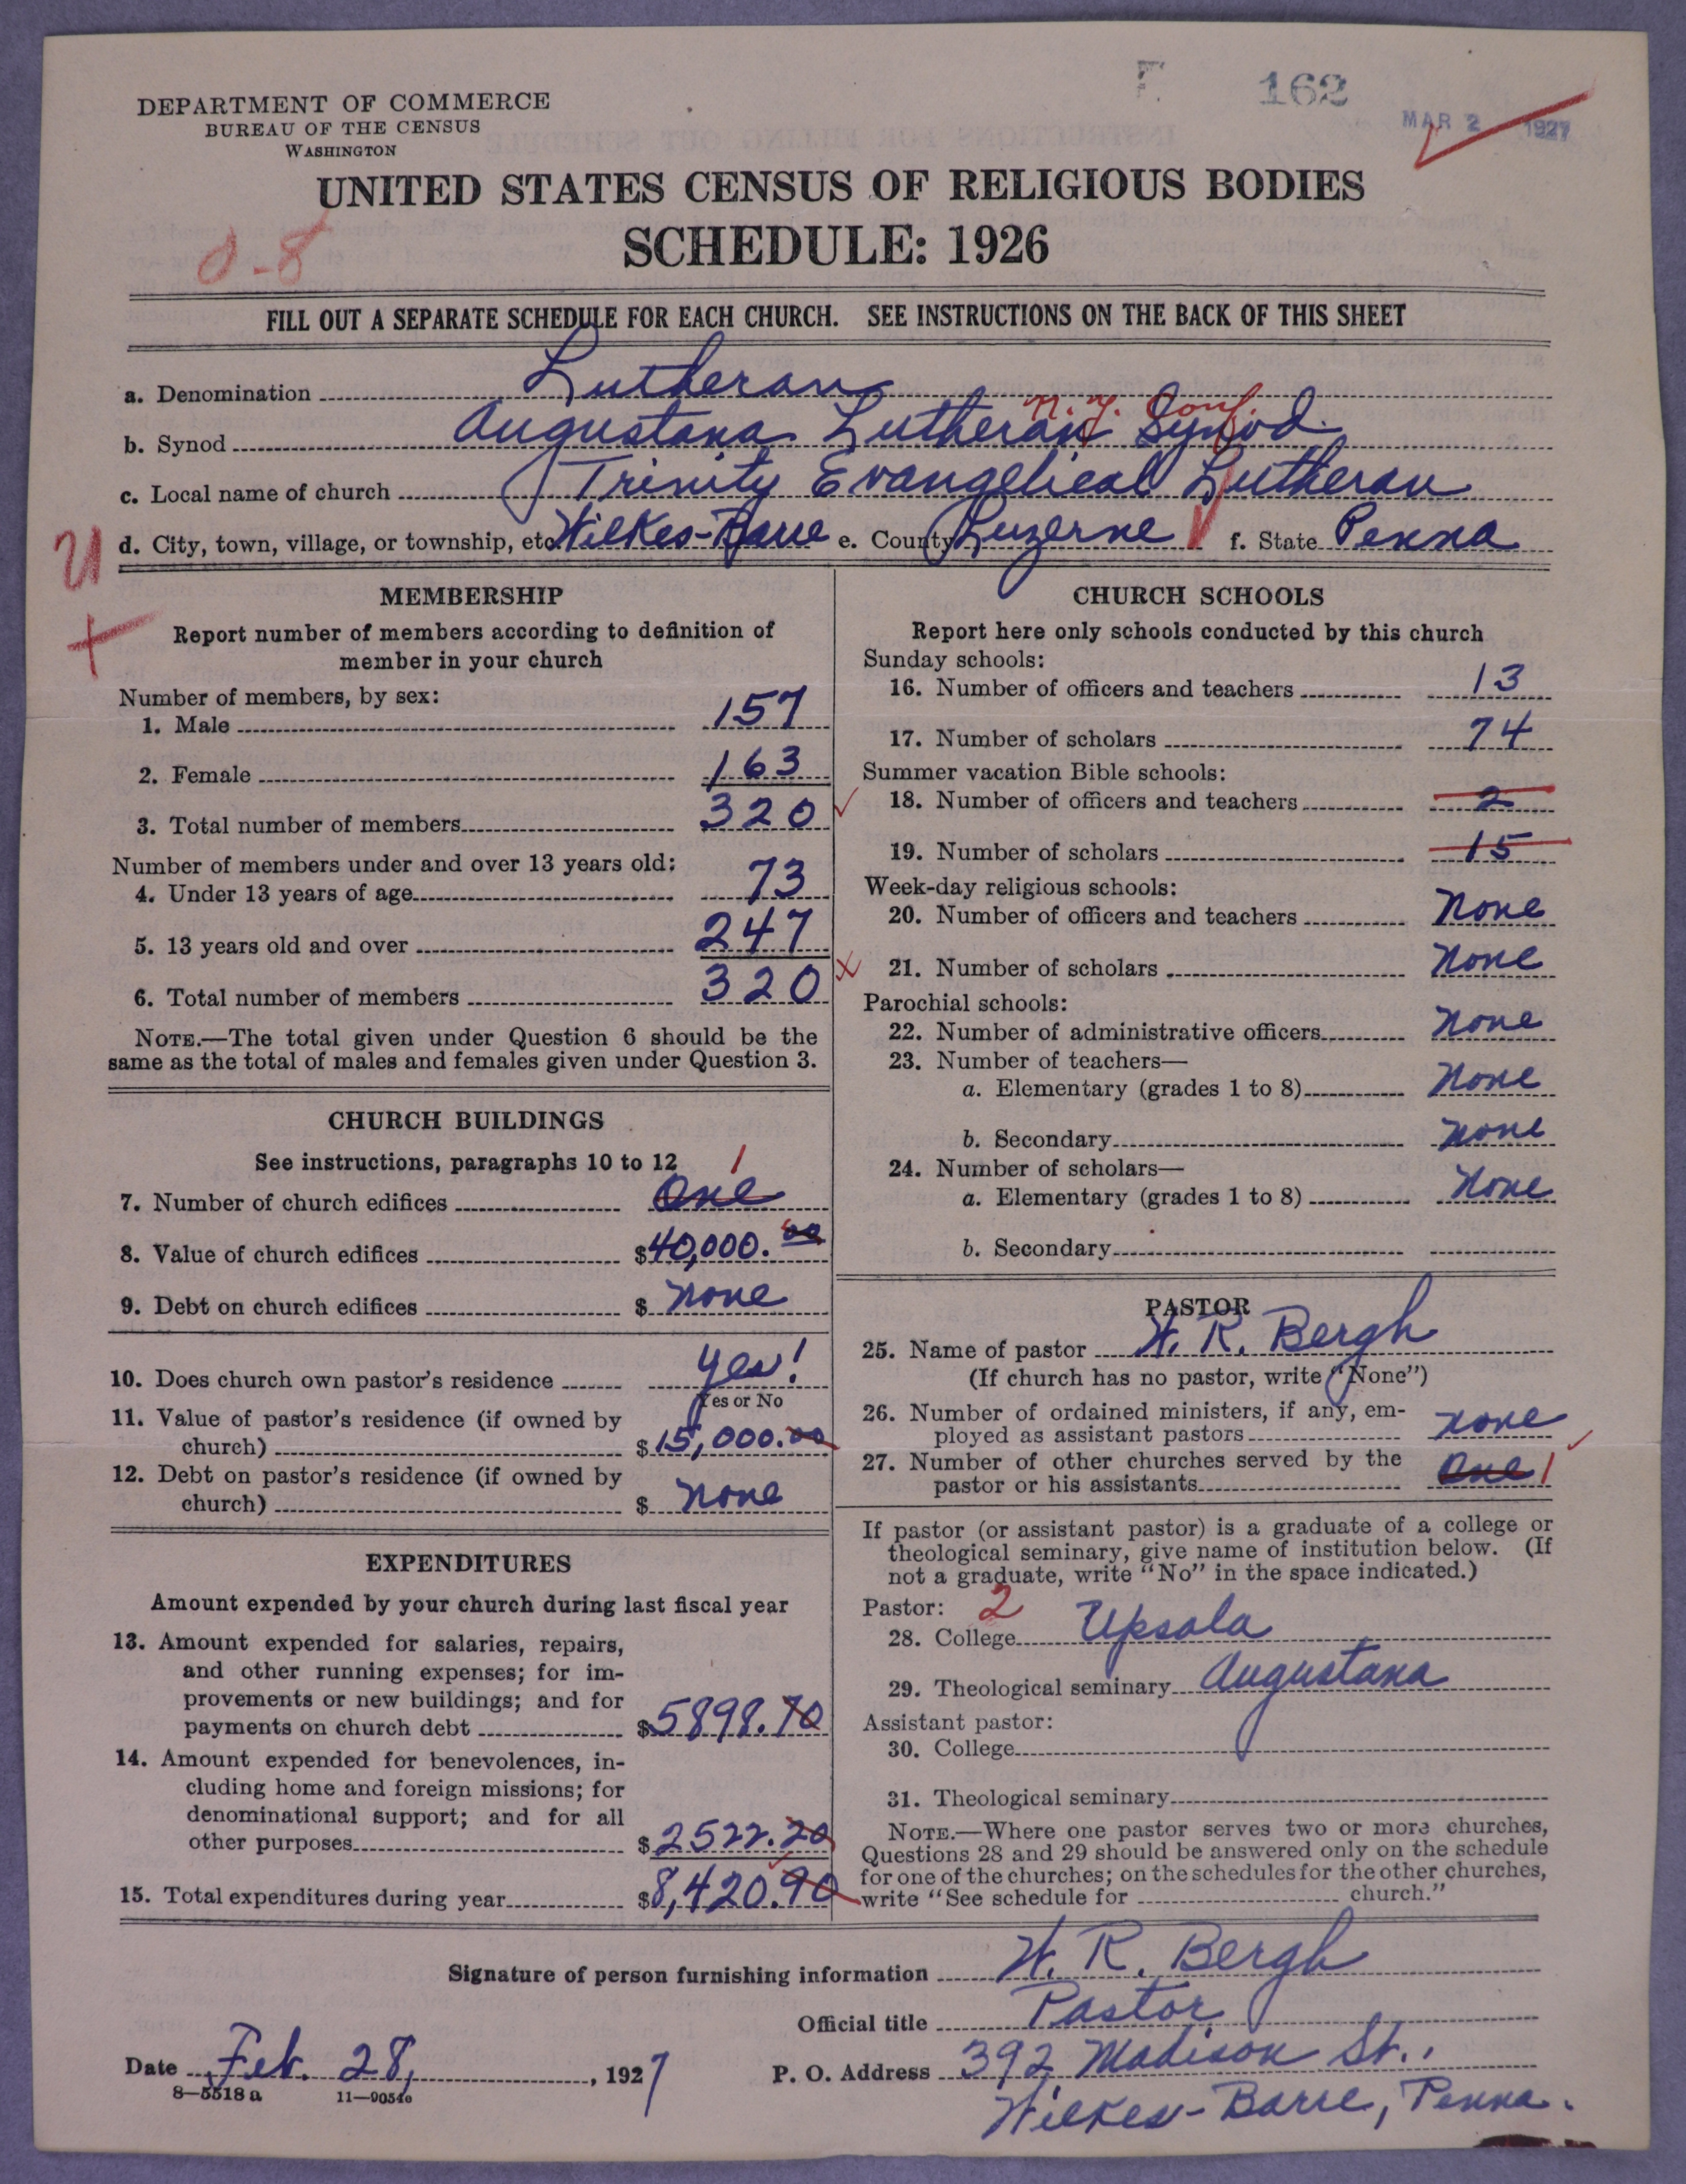 DEPARTMENT OF COMMERCE
BUREAU OF THE CENSUS
WASHINGTON
162
MAR 2 1927
UNITED STATES CENSUS OF RELIGIOUS BODIES
SCHEDULE: 1926
0-8
FILL OUT A SEPARATE SCHEDULE FOR EACH CHURCH. SEE INSTRUCTIONS ON THE BACK OF THIS SHEET
a. Denomination Lutheran
N.Y. Conf.
b. Synod Augustana Lutheran Synod.
c. Local name of church Trinity Evangelical Lutheran
d. City, town, village, or township, etc. Wilkes-Barre e. County Luzerne f. State Penna
MEMBERSHIP
Report number of members according to definition of
member in your church
Number of members, by sex:
1. Male 157
2. Female 163
3. Total number of members 320
Number of members under and over 13 years old:
4. Under 13 years of age 73
5. 13 years old and over 247
6. Total number of members 320
NOTE.—The total given under Question 6 should be the
same as the total of males and females given under Question 3.
CHURCH BUILDINGS
See instructions, paragraphs 10 to 12
1
7. Number of church edifices One
8. Value of church edifices $40,000.00
9. Debt on church edifices $ None
10. Does church own pastor's residence Yes!
Yes or No
11. Value of pastor's residence (if owned by
church) $15,000.00
12. Debt on pastor's residence (if owned by
church) $ None
EXPENDITURES
Amount expended by your church during last fiscal year
13. Amount expended for salaries, repairs,
and other running expenses; for im-
provements or new buildings; and for
payments on church debt $5898.70
14. Amount expended for benevolences, in-
cluding home and foreign missions; for
denominational support; and for all
other purposes $2522.20
15. Total expenditures during year $8,420.90
CHURCH SCHOOLS
Report here only schools conducted by this church
Sunday schools:
16. Number of officers and teachers 13
17. Number of scholars 74
Summer vacation Bible schools:
18. Number of officers and teachers 2
19. Number of scholars 15
Week-day religious schools:
20. Number of officers and teachers None
21. Number of scholars None
Parochial schools:
22. Number of administrative officers None
23. Number of teachers—
a. Elementary (grades 1 to 8) None
b. Secondary None
24. Number of scholars—
a. Elementary (grades 1 to 8) None
b. Secondary
PASTOR
25. Name of pastor W. R. Bergh
(If church has no pastor, write "None")
26. Number of ordained ministers, if any, em-
ployed as assistant pastors None
27. Number of other churches served by the
pastor or his assistants One 1
If pastor (or assistant pastor) is a graduate of a college or
theological seminary, give name of institution below. (If
not a graduate, write "No" in the space indicated.)
Pastor: 2
28. College Upsala
29. Theological seminary Augustana
Assistant pastor:
30. College
31. Theological seminary
NOTE.—Where one pastor serves two or more churches,
Questions 28 and 29 should be answered only on the schedule
for one of the churches; on the schedules for the other churches,
write "See schedule for church."
Signature of person furnishing information W. R. Bergh
Official title Pastor
Date Feb. 28, 1927
P. O. Address 392 Madison St.,
Wilkes-Barre, Penna.
8-5518 a 11-9054a